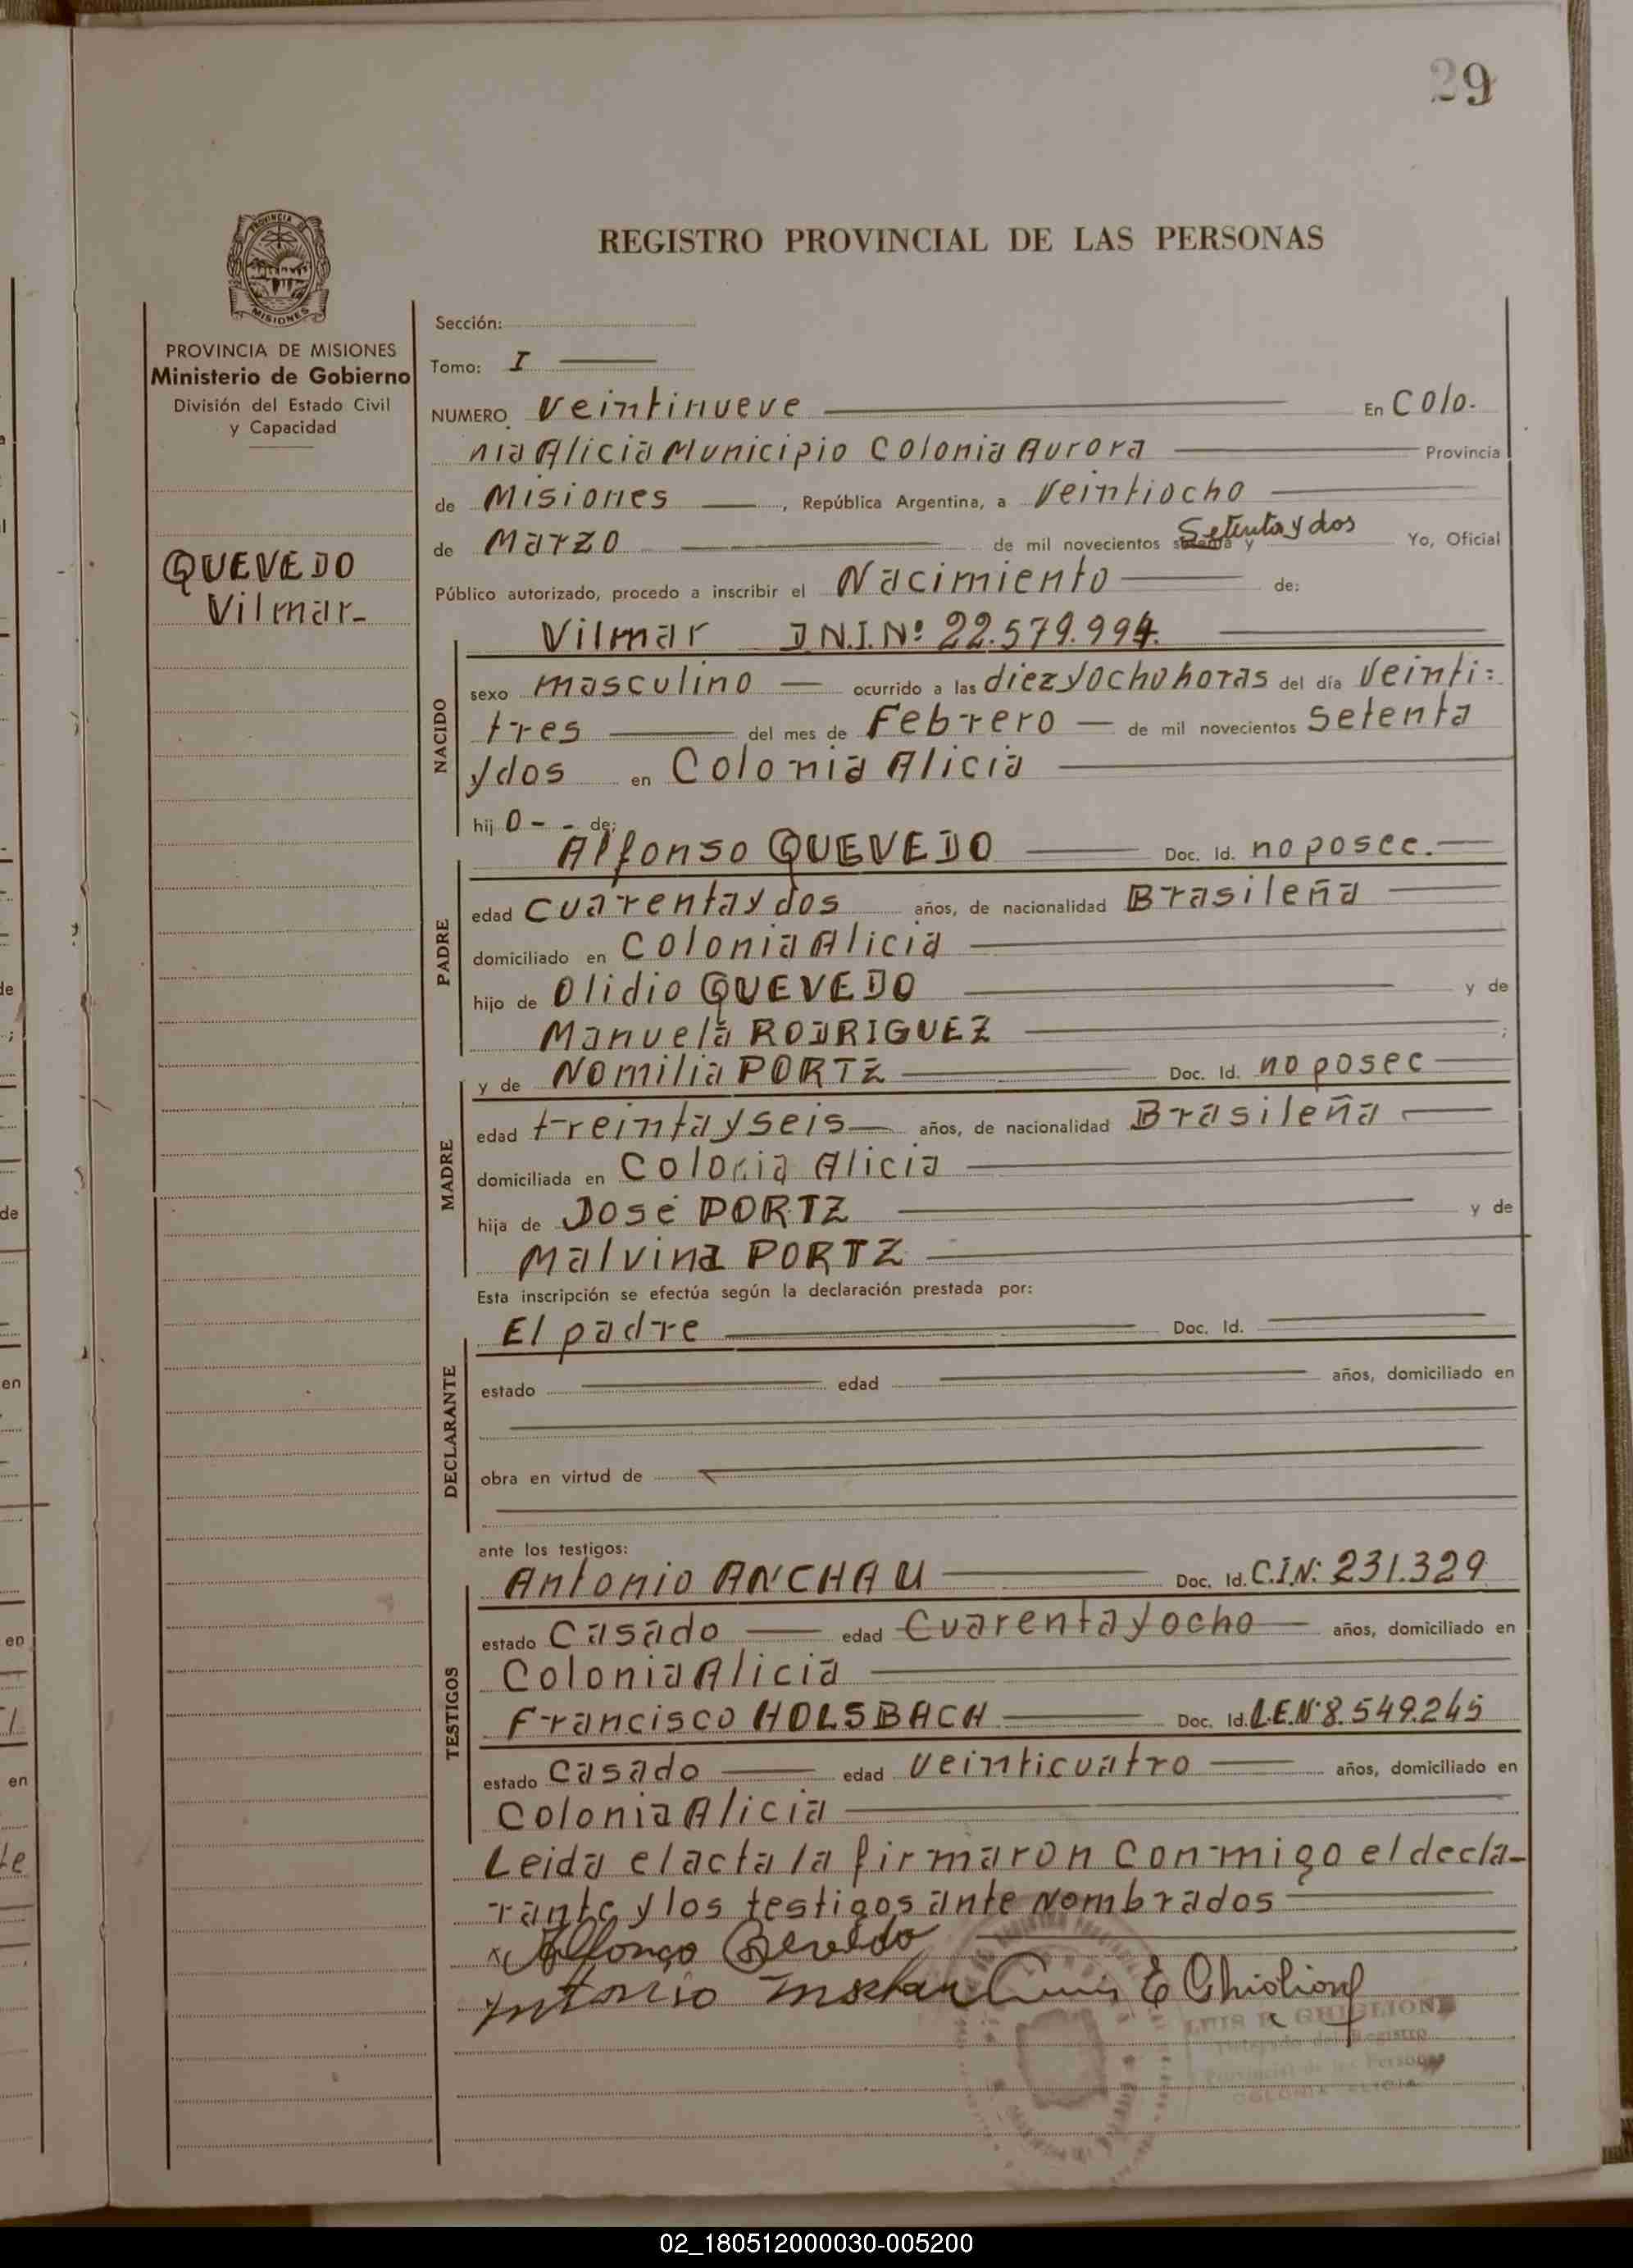 29
PROVINCIA DE
MISIONES
REGISTRO PROVINCIAL DE LAS PERSONAS
PROVINCIA DE MISIONES
Ministerio de Gobierno
División del Estado Civil
y Capacidad
QUEVEDO
Vilmar-
Sección:
Tomo: I
NUMERO veintinueve En Colo-
nia Alicia Municipio Colonia Aurora Provincia
de Misiones, República Argentina, a Veintiocho
de Marzo de mil novecientos Setenta y dos Yo, Oficial
Público autorizado, procedo a inscribir el Nacimiento de:
NACIDO
Vilmar D.N.I.Nº 22.579.994.
sexo masculino ocurrido a las diez y ocho horas del día Veinti=
tres del mes de Febrero de mil novecientos setenta
y dos en Colonia Alicia
hij o - - de:
PADRE
Alfonso QUEVEDO Doc. Id. no posee.
edad cuarenta y dos años, de nacionalidad Brasileña
domiciliado en Colonia Alicia
hijo de Olidio QUEVEDO y de
Manuela RODRIGUEZ ;
MADRE
y de Nomilia PORTZ Doc. Id. no posee
edad treinta y seis años, de nacionalidad Brasileña
domiciliada en Colonia Alicia
hija de José PORTZ y de
Malvina PORTZ
Esta inscripción se efectúa según la declaración prestada por:
DECLARANTE
El padre Doc. Id.
estado edad años, domiciliado en
obra en virtud de
ante los testigos:
TESTIGOS
Antonio ANCHAU Doc. Id. C.I.Nº 231.329
estado Casado edad Cuarenta y ocho años, domiciliado en
Colonia Alicia
Francisco HOLSBACH Doc. Id. L.E.Nº 8.549.245
estado Casado edad veinticuatro años, domiciliado en
Colonia Alicia
Leida el acta la firmaron conmigo el decla-
rante y los testigos ante nombrados
Antonio Luis E Ghiglione
LUIS E. GHIGLIONE
Delegado del Registro
Provincial de las Personas
COLONIA ALICIA
02_180512000030-005200